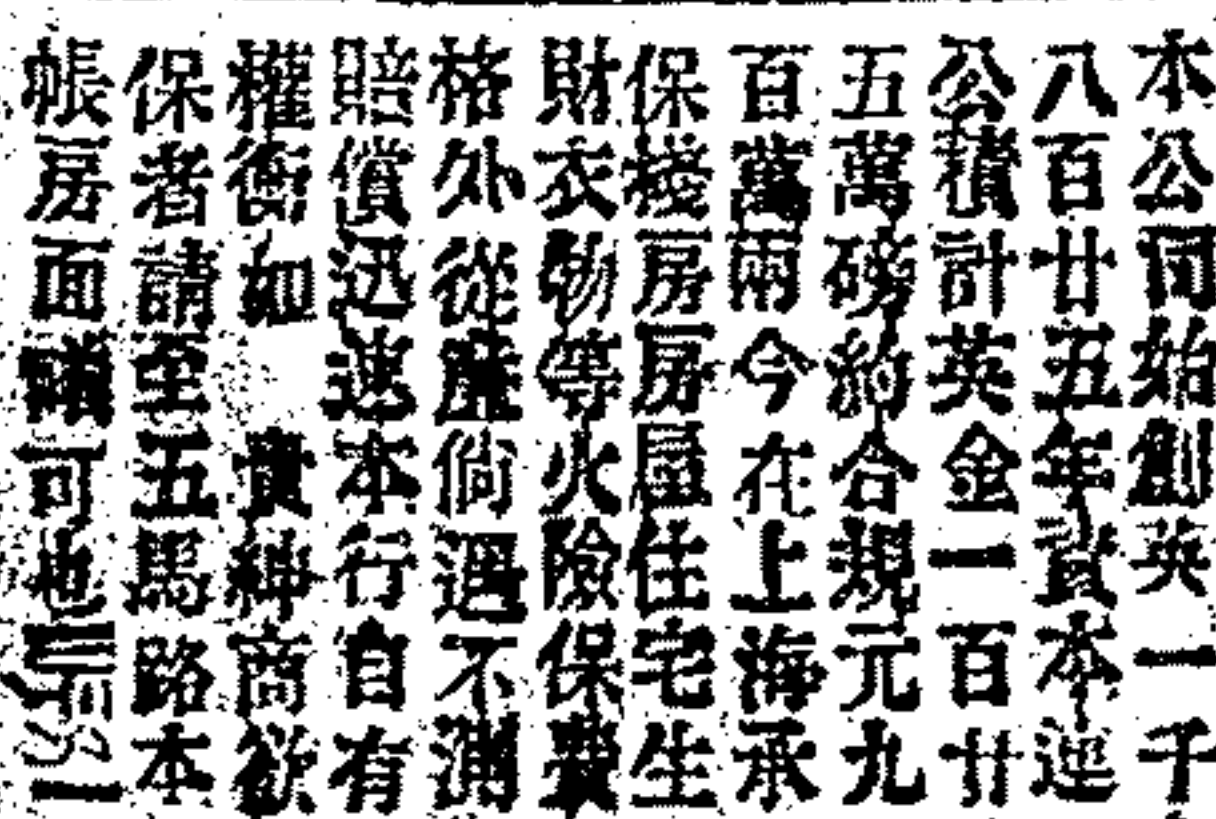 本公司始創英一千
八百廿五年資本連
公積計英金一百廿
五萬磅約合規元九
百萬兩今在上海承
保棧房房屋住宅生
財衣物等火險保費
格外從廉倘遇不測
賠償迅速本行自有
權衡如 貴紳商欲
保者請至五馬路本
帳房面議可也